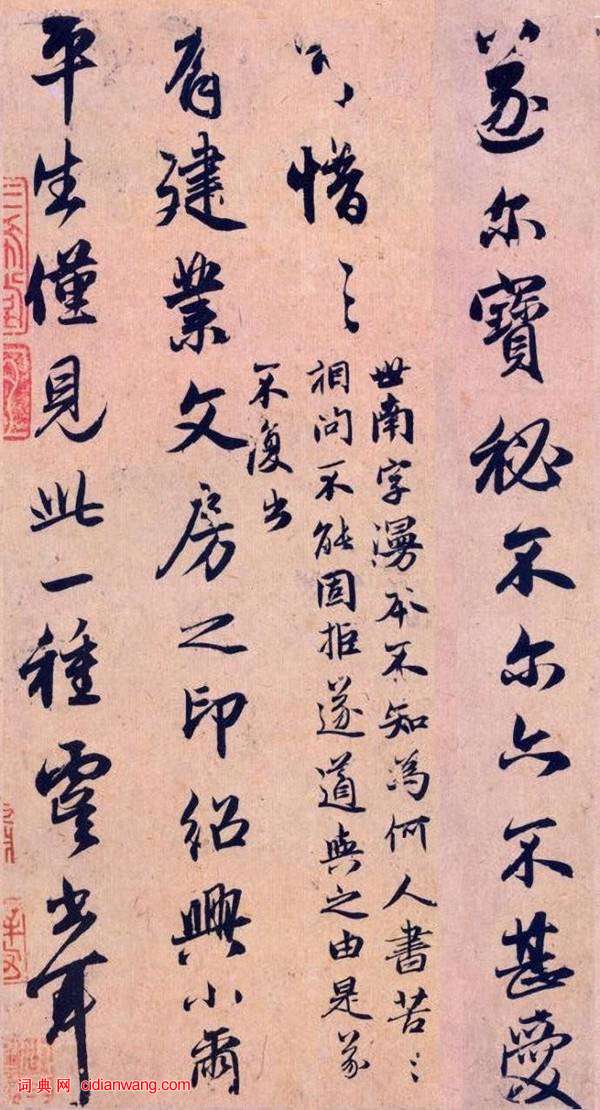 遂尔寶秘不尔亦不甚愛
可惜〻
世南字漫本不知為何人書苦〻
相問不能固拒遂道與之由是
不復出
有建業文房之印紹興小爾
平生僅見此一種虞書耳
词典网 cidianwang.com